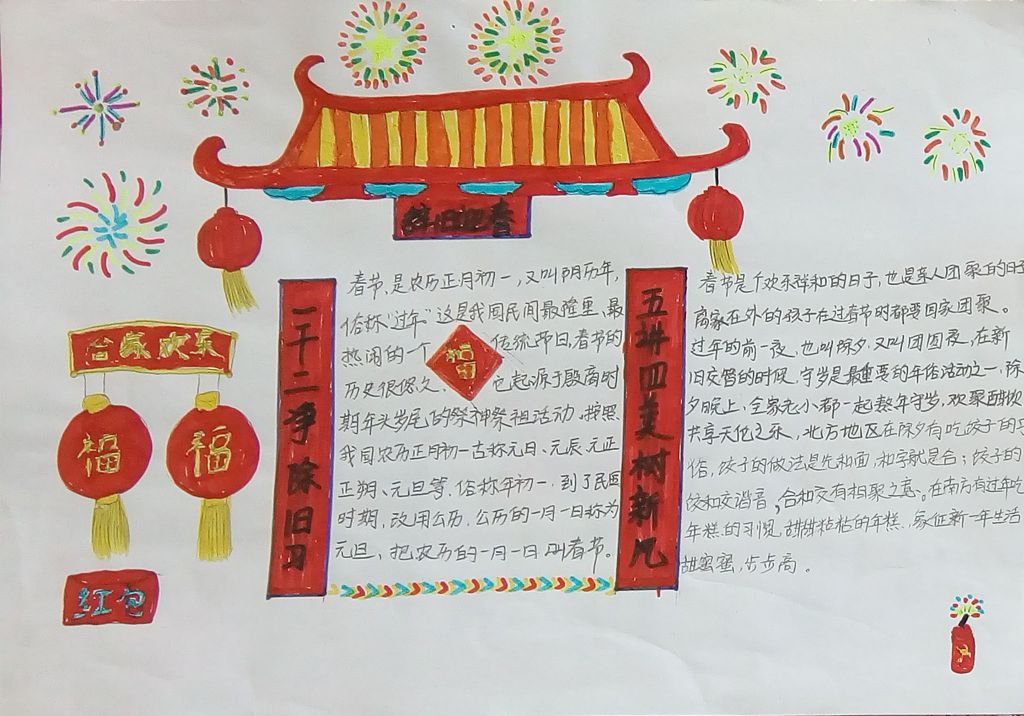 辞旧迎春
合家欢乐
福
福
红包
一干二净除旧习
五讲四美树新风
春节,是农历正月初一,又叫阴历年,
俗称“过年”这是我国民间最隆重、最
热闹的一个传统节日,春节的
福
历史很悠久、它起源于殷商时
期年头岁尾的祭神祭祖活动。按照
我国农历正月初一古称元日、元辰、元正
正朔、元旦等,俗称年初一,到了民国
时期,改用公历,公历的一月一日称为
元旦,把农历的一月一日叫春节。
春节是个欢乐祥和的日子,也是亲人团聚的日子
离家在外的孩子在过春节时都要回家团聚。
过年的前一夜,也叫除夕,又叫团圆夜,在新
旧交替的时候,守岁是最重要的年俗活动之一,除
夕晚上,全家老小都一起熬年守岁,欢聚酣饮
共享天伦之乐,北方地区在除夕有吃饺子的习
俗,饺子的做法是先和面,和字就是合;饺子的
饺和交谐音,合和交有相聚之意。在南方有过年吃
年糕的习惯,甜甜粘粘的年糕,象征新一年生活
甜蜜蜜,步步高。